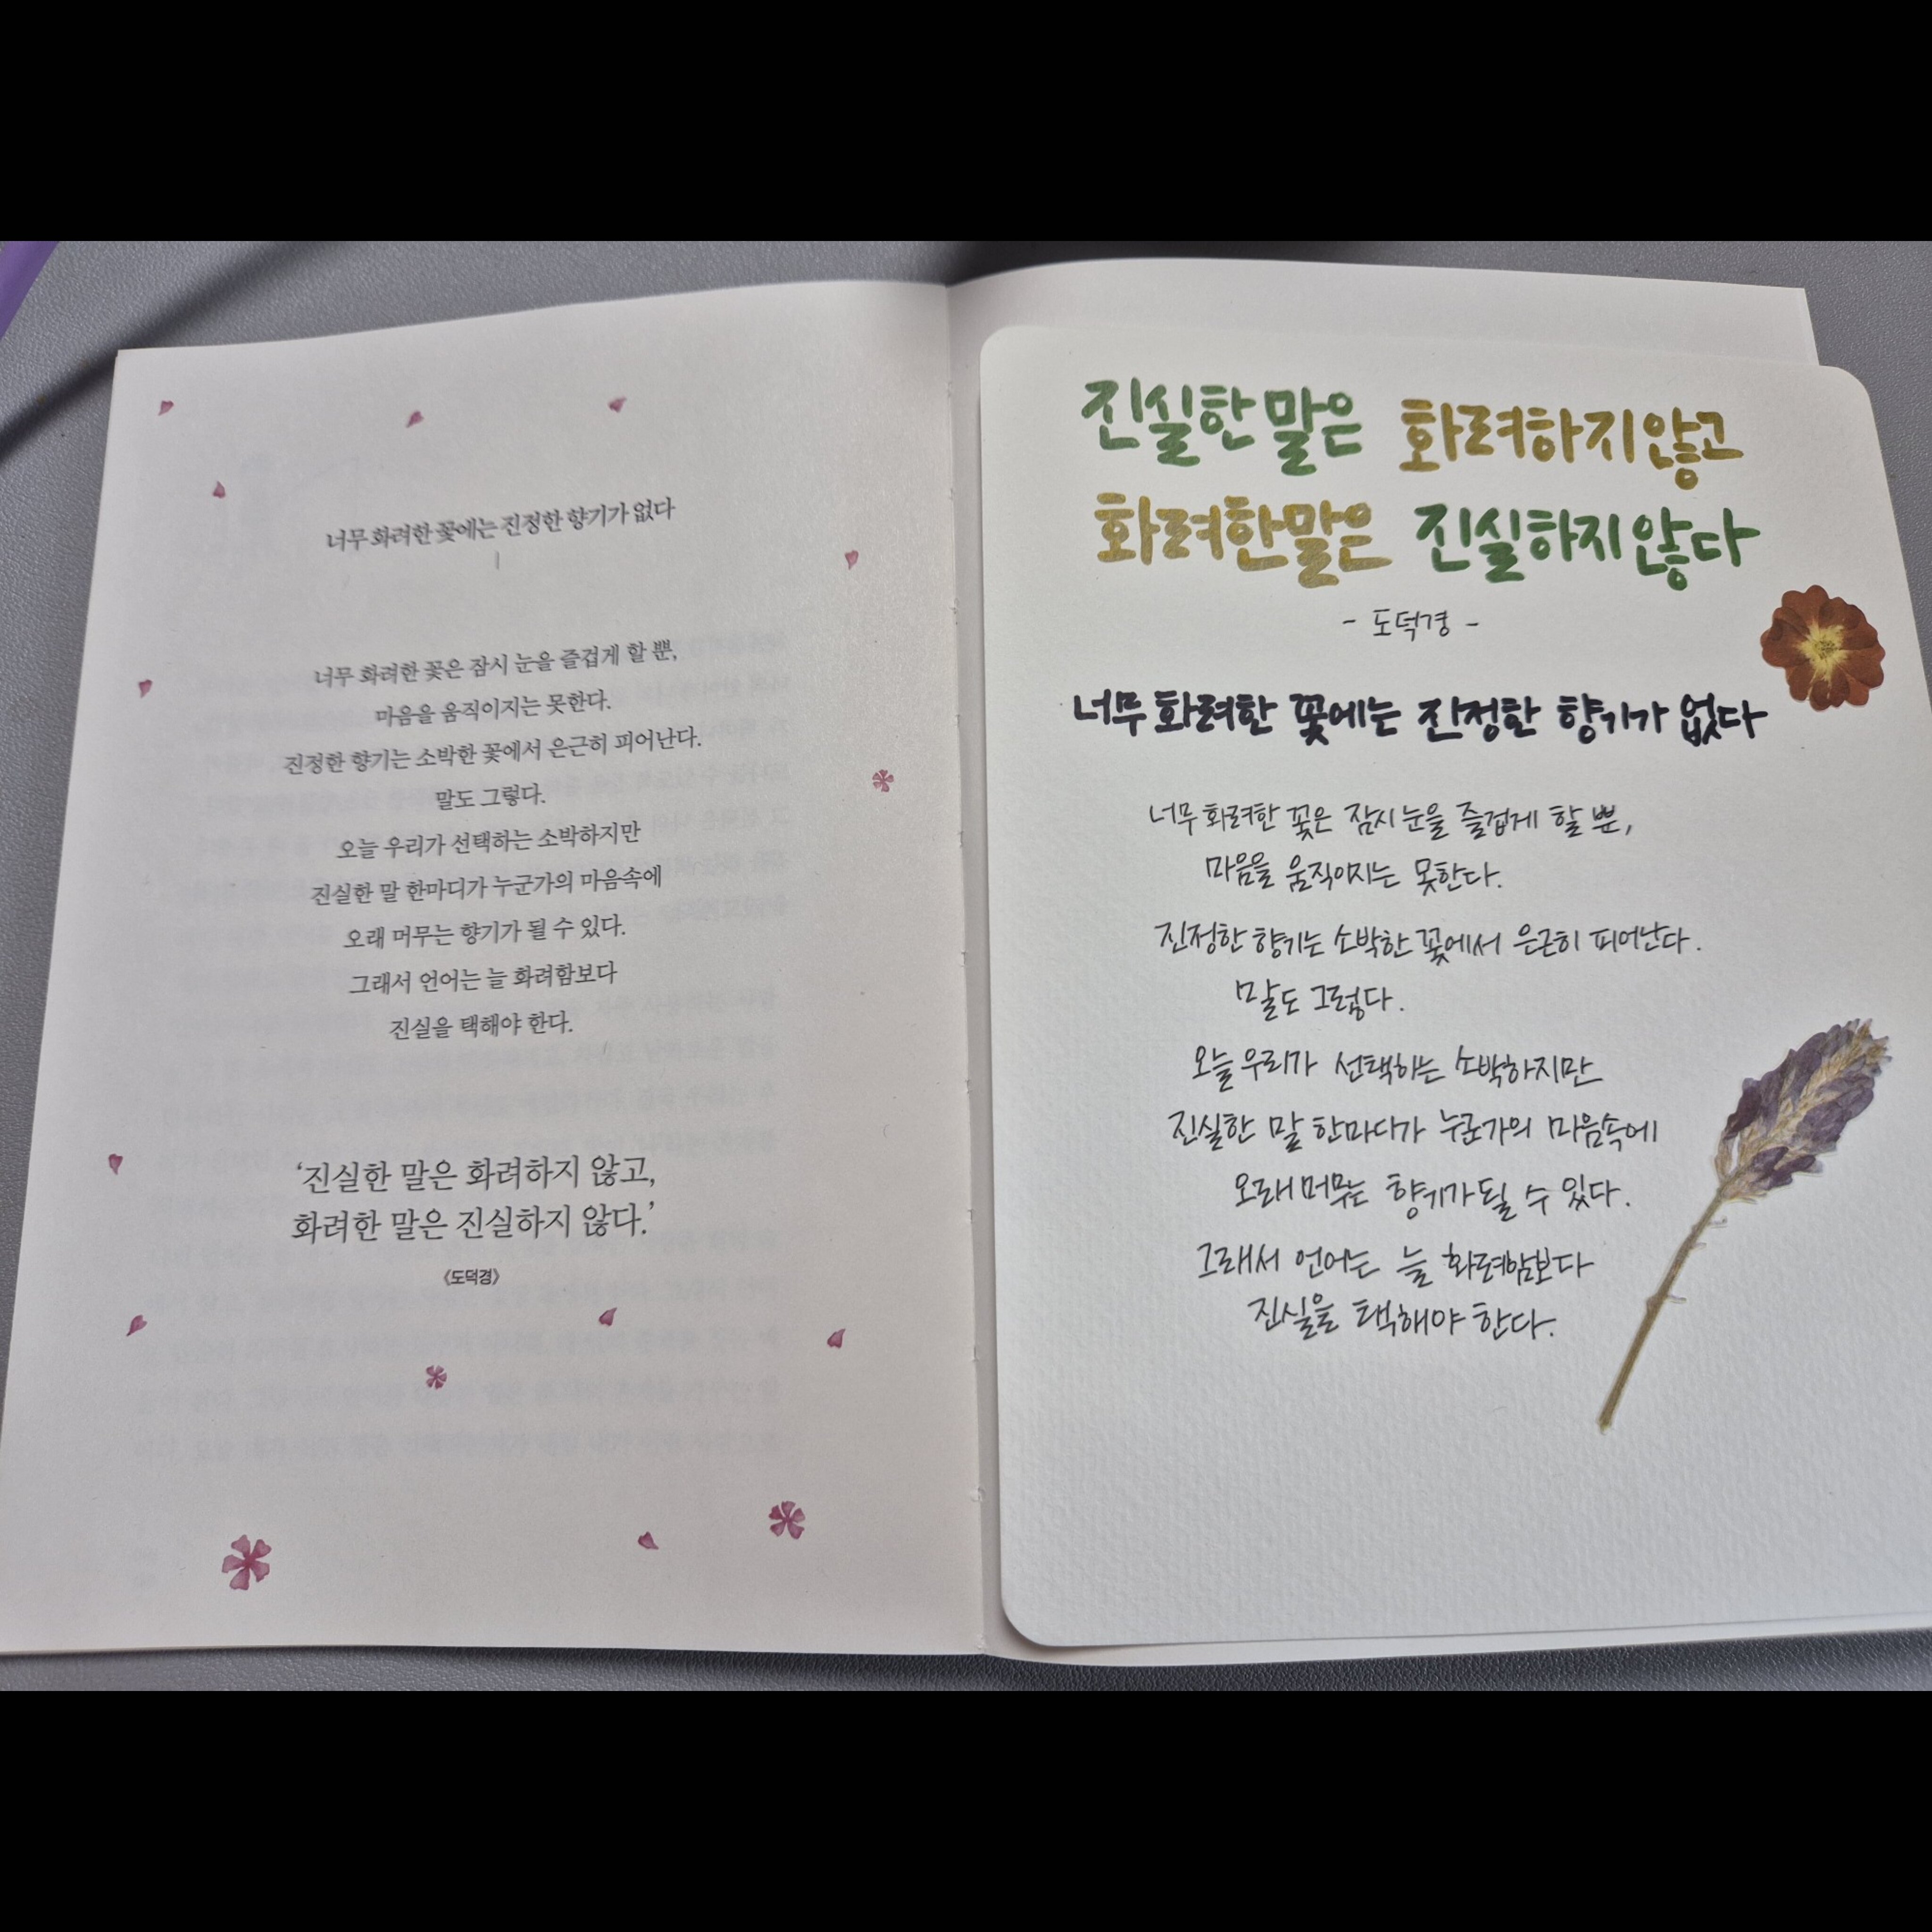 너무 화려한 꽃에는 진정한 향기가 없다
너무 화려한 꽃은 잠시 눈을 즐겁게 할 뿐,
마음을 움직이지는 못한다.
진정한 향기는 소박한 꽃에서 은근히 피어난다.
말도 그렇다.
오늘 우리가 선택하는 소박하지만
진실한 말 한마디가 누군가의 마음속에
오래 머무는 향기가 될 수 있다.
그래서 언어는 늘 화려함보다
진실을 택해야 한다.
‘진실한 말은 화려하지 않고,
화려한 말은 진실하지 않다.’
《도덕경》
진실한 말은 화려하지 않고
화려한 말은 진실하지 않다
- 도덕경 -
너무 화려한 꽃에는 진정한 향기가 없다
너무 화려한 꽃은 잠시 눈을 즐겁게 할 뿐,
마음을 움직이지는 못한다.
진정한 향기는 소박한 꽃에서 은근히 피어난다.
말도 그렇다.
오늘 우리가 선택하는 소박하지만
진실한 말 한마디가 누군가의 마음속에
오래 머무는 향기가 될 수 있다.
그래서 언어는 늘 화려함보다
진실을 택해야 한다.